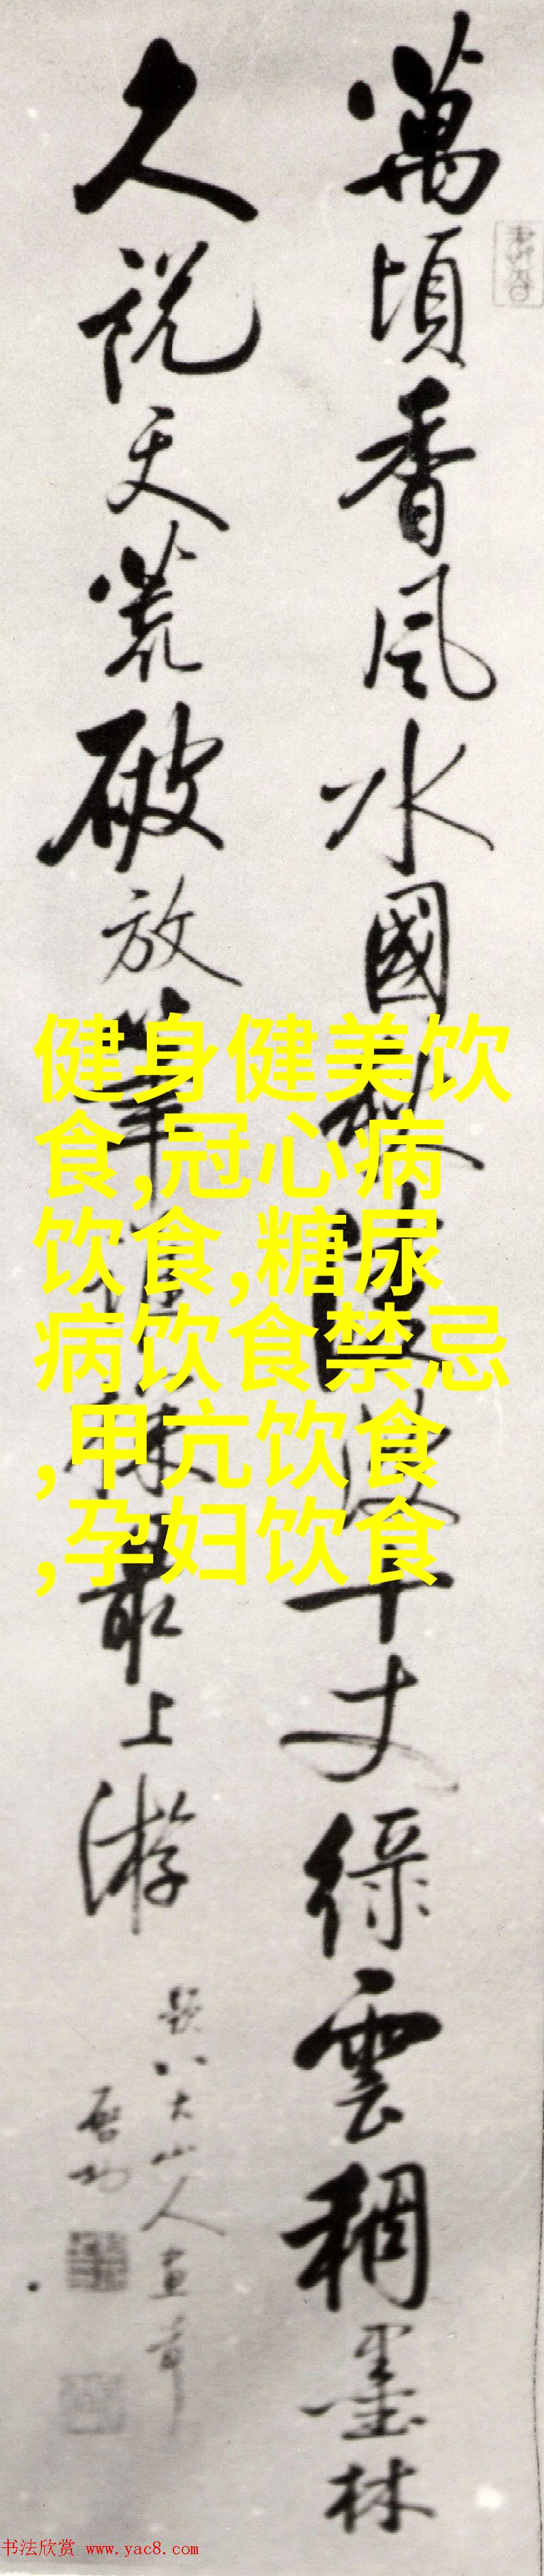 萬頃香風水國秋淩波千丈綠雲稠墨林
久說天荒破放筆誰稱最上游
題八大山人畫荷
啓功
健身健美饮
食,冠心病
饮食,糖尿
病饮食禁忌
,甲亢饮食
,孕妇饮食
书法欣赏 www.yac8.com